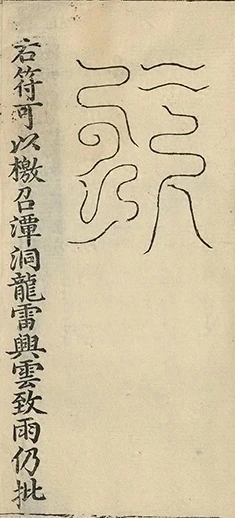 右符可以檄召潭洞龍雷興雲致雨仍批